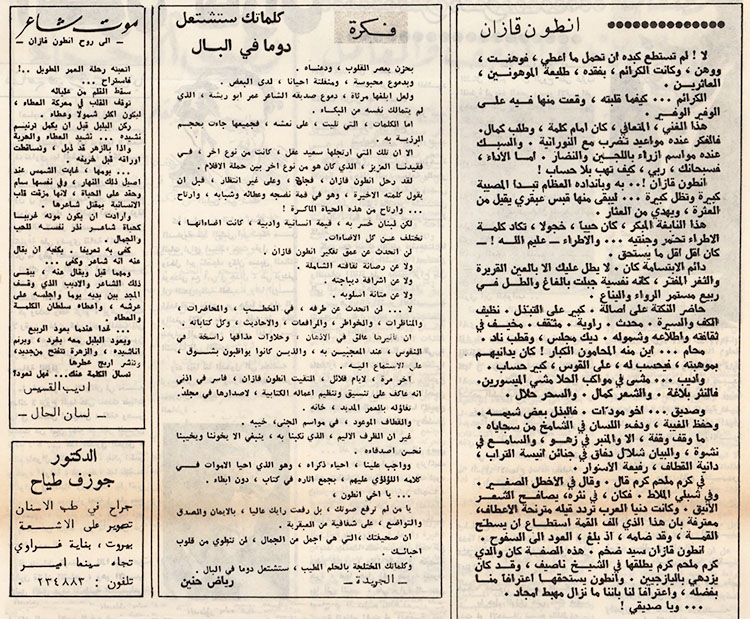 انطون قازان
لا ! لم تستطع كبده ان تحمل ما اعطي ، فوهنت ،
ووهن ، وكانت الكرائم ، بفقده ، طليعة الموهونين ،
العاثرين .
الكرائم ... كيفما قلبته ، وقعت منها فيه على
الوفير الوفير .
هذا الغني ، المتعافي ، كان امام كلمة ، وطلب كمال .
فالفكر عنده مواعيد تضرب مع النورانية . والسبك
عنده مواسم ازراء باللجين والنضار . اما الاداء ،
فسبحانك ، ربي ، كيف تهب بلا حساب !
انطون قازان !.. به وبانداده العظام تبدا المصيبة
كبيرة وتظل كبيرة ... ليبقى منها قبس عبقري يقيل من
العثرة ، ويهدي من العثار .
هذا النافعة المبكر ، كان حييا ، خجولا ، تكاد كلمة
الاطراء تحمر وجنتيه ... والاطراء ـ عليم الله ! ـ
كان اقل اقل ما يستحق .
دائم الابتسامة كان . لا يطل عليك الا بالعين القريرة
والثغر المفتر ، كانه نفسية جبلت بالفاغ والطل في
ربيع مستمر الرواء والبناع .
حاضر النكتة على اصالة . كبير على التبذل . نظيف
الكف والسيرة . محدث . راوية . مثقف . مخيف في
ثقافته واطلاعه وشموله . ديك مجلس ، وقطب ناد .
محام ... اين منه المحامون الكبار ! كان يدانيهم
بموهبته ، فيحسب له ، على القوس ، كبير حساب .
واديب ... مشى في مواكب الحلا مشي الميسورين .
فالنثر بلاغة . والشعر كمال . والسحر حلال .
وصديق ... اخو مودات . فالبذل بعض شيمه .
وحفظ الغيبة ، ودفء اللسان في الشامخ من سجاياه .
ما وقف وقفة ، الا والمنبر في زهو ، والسامع في
نشوة ، والبيان شلال دفاق في جنائن انيسة التراب ،
دانية القطاف ، رفيعة الاسوار .
في كرم ملحم كرم قال . وقال في الاخطل الصغير .
وفي شبلي الملاط . فكان ، في نثره ، يصافح الشعر
الانيق . وكانت دنيا العرب تردد قيله مترنحة الاعطاف ،
معترفة بان هذا الذي الف القمة استطاع ان يسطح
القمة ، وقد ضامه ، اذ بلغ ، العود الى السفوح .
انطون قازان سيد ضخم . هذه الصفة كان والدي
كرم ملحم كرم يطلقها في الشيخ ناصيف ، وقد كان
يزدهي باليازجيين . وانطون يستحقها اعترافا منا
بفضله ، واعترافا لنا باننا ما نزال مهبط امجاد .
... ويا صديقي !
فكرة
كلماتك ستشتعل
دوما في البال
بحزن يعصر القلوب ، ودعناه .
وبدموع محبوسة ، ومنفلتة احيانا ، لدى البعض .
ولعل ابلغها مرثاة ، دموع صديقه الشاعر عمر ابو ريشة ، الذي
لم يتمالك نفسه من البكاء .
اما الكلمات ، التي تليت ، على نعشه ، فجميعها جاءت بحجم
الرزية به .
الا ان تلك التي ارتجلها سعيد عقل ، كانت من نوع آخر ، في
فقيدنا العزيز ، الذي كان هو من نوع آخر بين حملة الاقلام .
لقد رحل انطون قازان ، فجاة ، وعلى غير انتظار ، قبل ان
يقول كلمته الاخيرة ، وهو في قمة نضجه وعطائه وشبابه ، وارتاح
... وارتاح من هذه الحياة الماكرة !
لكن لبنان خسر به ، قيمة انسانية وادبية ، كانت اضاءاتها ،
تختلف عن كل الاضاءات .
لن اتحدث عن عمق تفكير انطون قازان .
ولا عن رصانة ثقافته الشاملة .
ولا عن اشراقة ديباجته .
ولا عن متانة اسلوبه .
لا ... لن اتحدث عن ظرفه ، في الخطب ، والمحاضرات ،
والمناظرات ، والخواطر ، والمرافعات ، والاحاديث ، وكل كتاباته .
ان تأثيرها عالق في الاذهان ، وحلاوات مذاقها راسخة في
النفوس ، عند المعجبين به ، والذين كانوا يواظبون بشوق ،
على الاستماع اليه .
آخر مرة ، لايام قلائل ، التقيت انطون قازان ، فاسر في اذني
انه عاكف على تنسيق وتنظيم اعماله الكتابية ، لاصدارها في مجلد .
تفاؤله بالعمر المديد ، خانه .
والقطاف الموعود ، في مواسم الجنى، خيبه .
غير ان الظرف الاليم ، الذي نكبنا به ، ينبغي الا يخوننا ويخيبنا
نحن اصدقاءه .
وواجب علينا ، احياء ذكراه ، وهو الذي احيا الاموات في
كلامه اللؤلؤي عليهم ، بجمع آثاره في كتاب ، دون ابطاء .
... يا اخي انطون ،
يا من لم ترفع صوتك ، بل رفعت رايك عاليا ، بالايمان والصدق
والتواضع ، على شفافية من العبقرية .
ان صحيفتك ،التي هي اجمل من الجمال ، لن تنطوي من قلوب
احبائك .
وكلماتك المختلجة بالحلم الطيب ، ستشتعل دوما في البال .
ـ الجريدة ـ رياض حنين
موت شاعر
ـ الى روح انطون قازان ـ
اتعبته رحلة العمر الطويل ..!
فاستراح ...
سقط القلم من عليائه
توقف القلب في معركة العطاء ،
ليكون اكثر شمولا وعطاء .
ركن البلبل قبل ان يكمل ترنيم
نشيده ... نشيد العطاء والحرية
واذا بالزهر قد ذبل ، وتساقطت
اوراقه قبل خريفه .
... يومها ، غابت الشمس عند
اصيل ذلك النهار ، وفي نفسها سام
وحقد على الحياة ، لانها مزقت قلب
الانسانية بمقتل شاعرها .
وارادت ان يكون موته غريبا
كحياة شاعر نذر نفسه للحب
والجمال .
كفى به تعريفا . يكفيه ان يقال
عنه انه شاعر وكفى ...
ومهما قيل ويقال عنه ، يبقى
ذلك الشاعر والاديب الذي وقف
المجد بين يديه يوما واجلسه على
عرشه ، واعطاه سلطان الكلمة
والعطاء .
... غدا عندما يعود الربيع
ويعود البلبل معه يغرد ، ويرنم
اناشيده ، والزهرة تتفتح من جديد،
وتنشر اريج عطرها
تسأل الكلمة عنك... فهل تعود؟
اديب القسيس
ـ لسان الحال ـ
الدكتور
جوزف طياح
جراح في طب الاسنان
تصوير على الاشعة
بيروت ، بناية فراوي
تجاه سينما امير
تلفون : ٢٣٤٨٨٣ .